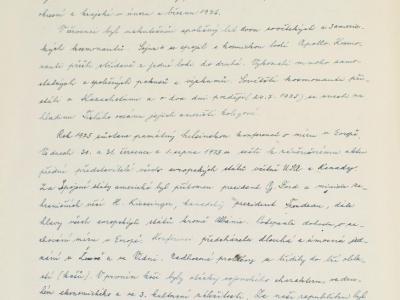 okresní a krajské v únoru a březnu 1976.
V červenci byl uskutečněn společný let dvou sovětských a 3 americ-
kých kosmonautů. Sojuz se spojil s kosmickou lodí Apollo. Kosmo-
nauti přešli střídavě z jedné lodi do druhé. Vykonali mnoho samo-
statných a společných pokusů a výzkumů. Sovětští kosmonauti při-
stáli v Kazachstanu a o dva dni později (24.7.1975) se snesli na
hladinu Tichého oceánu jejich američtí kolegové.
Rok 1975 zůstane památný helsinskou konferencí o míru v Evropě.
Ve dnech 30. a 31. července a 1. srpna 1975 se sešli k závěrečnému aktu
přední představitelé všech evropských států včetně USA a Kanady.
Za Spojené státy americké byl přítomen president G. Ford a ministr za-
hraničních věcí H. Kissinger, kanadský president Trudeau, dále
hlavy všech evropských států kromě Albánie. Podepsali dohodu o za-
chování míru v Evropě. Konferenci předcházela dlouhá a úmorná jed-
nání v Ženevě a ve Vídni. Projednávané problémy se třídily do tří oblas-
tí (košů). V prvním koši byly otázky vojenského charakteru, ve dru-
hém ekonomického a ve 3. kulturní záležitosti. Za naši republiku byl